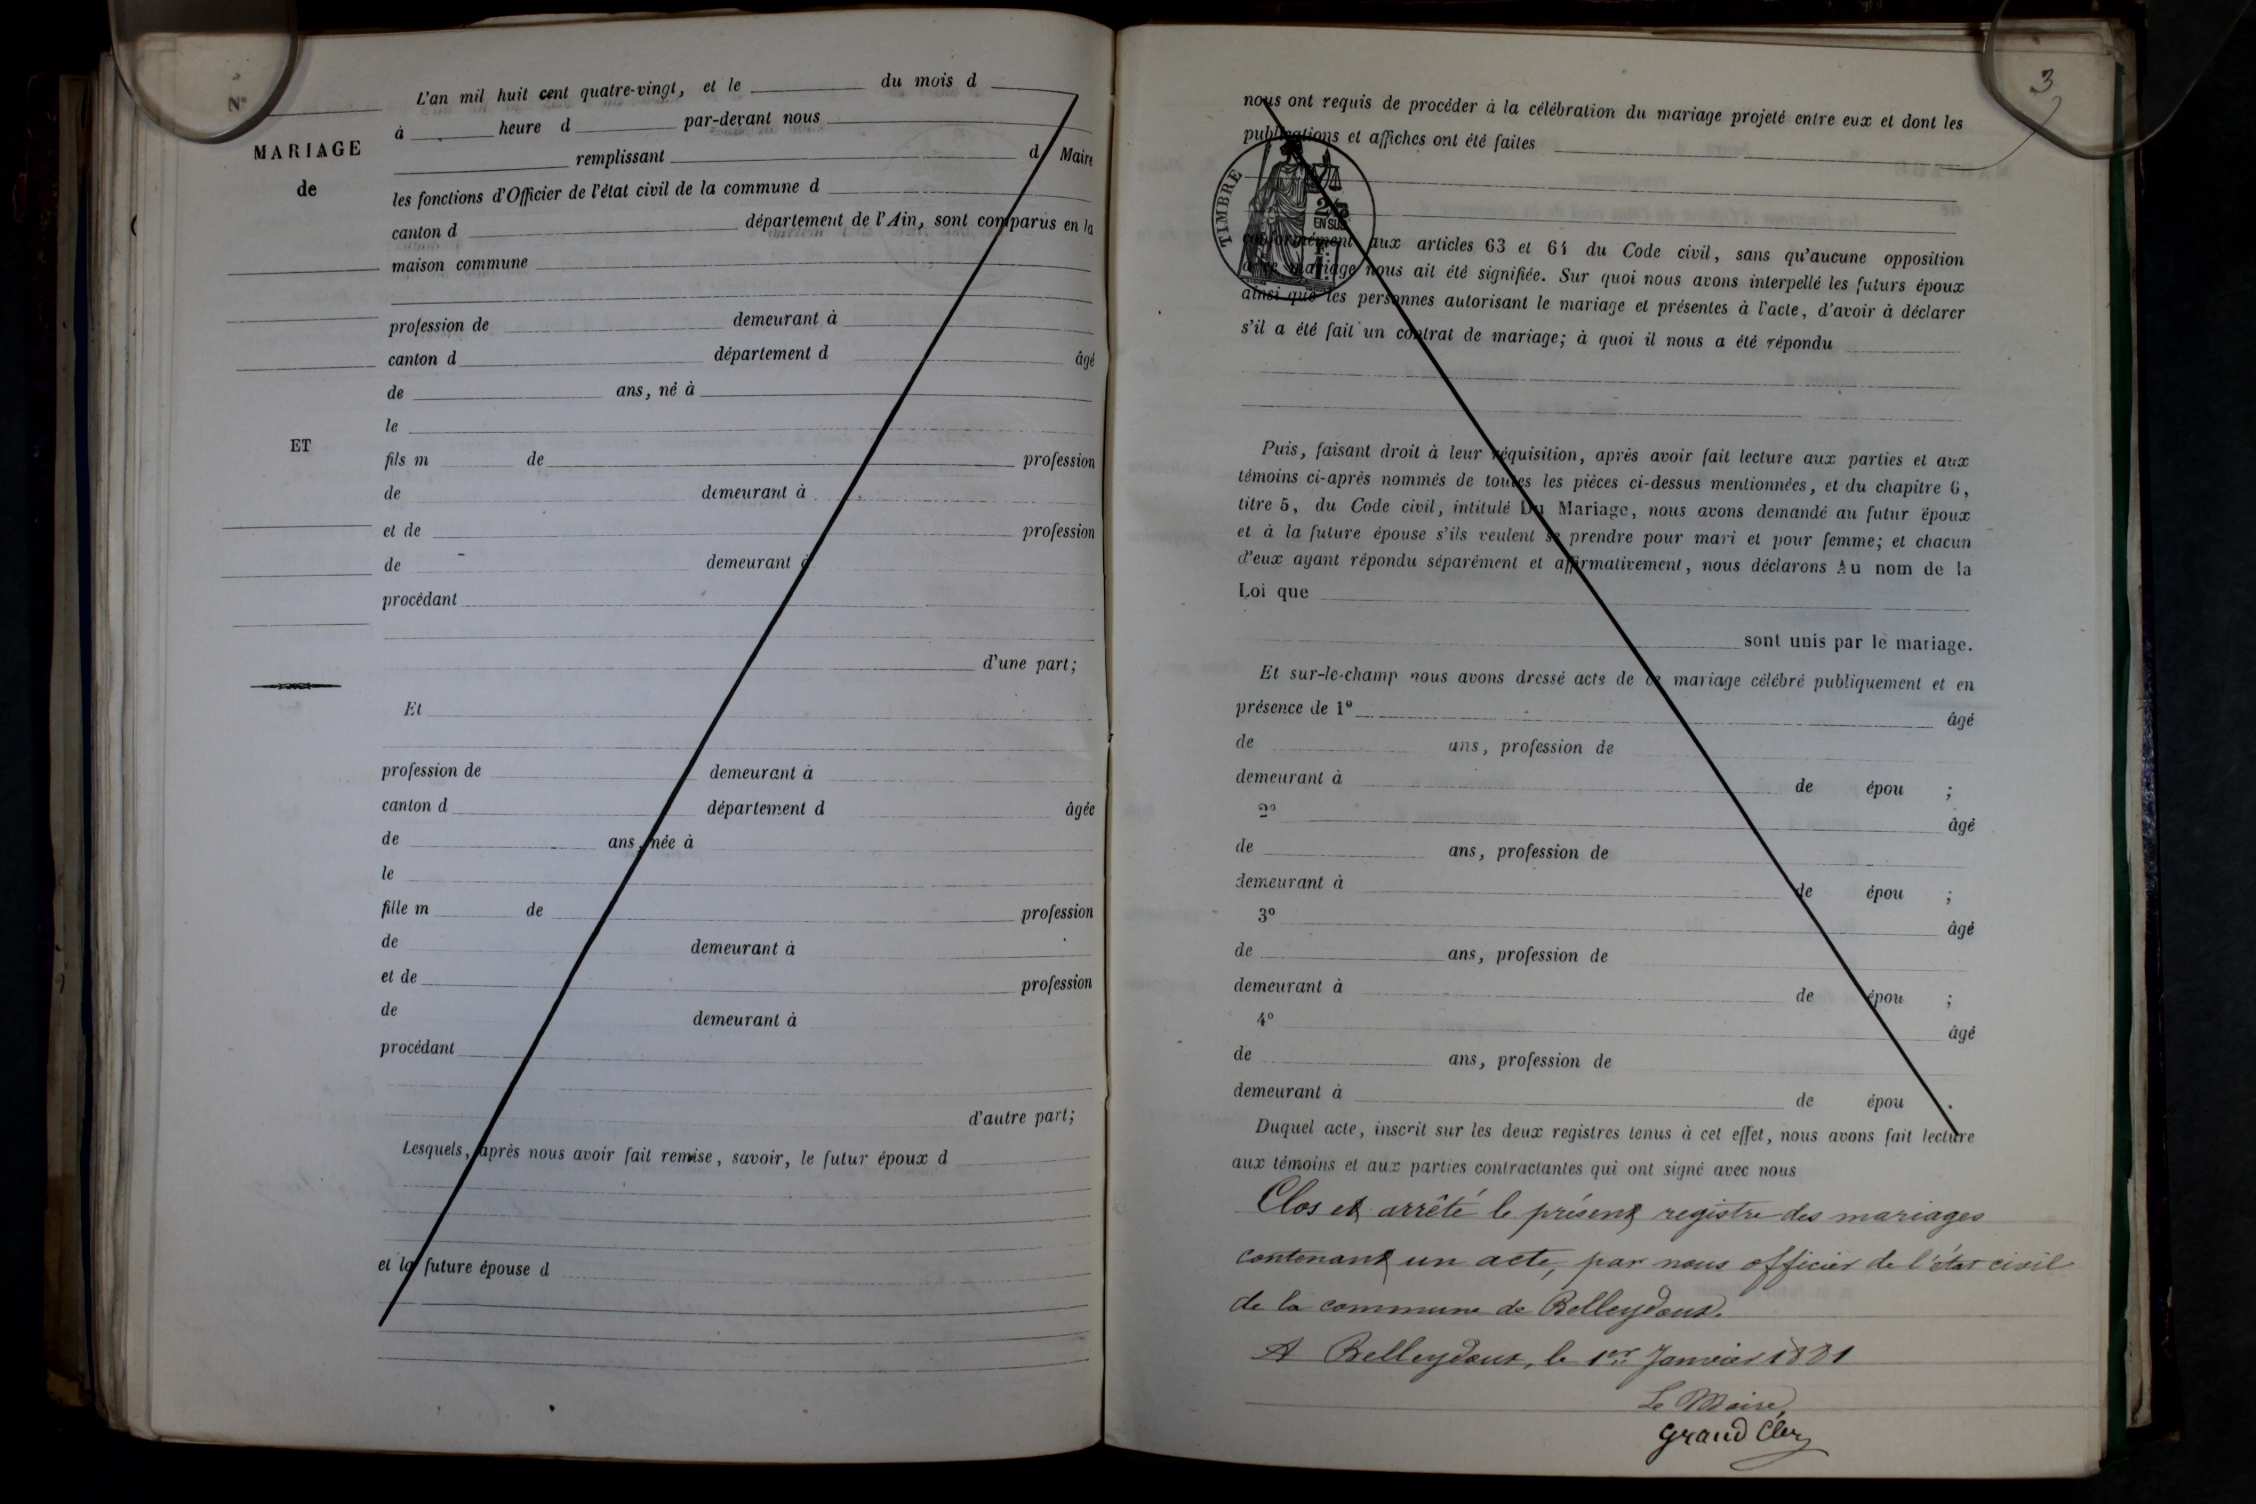 N°
MARIAGE
de
ET
L'an mil huit cent quatre-vingt, et le du mois d
à heure d par-devant nous
remplissant d Maire
les fonctions d'Officier de l'état civil de la commune d
canton d département de l'Ain, sont comparus en la
maison commune
profession de demeurant à
canton d département d âgé
de ans, né à
le
fils m de profession
de demeurant à
et de profession
de demeurant à
procédant
d'une part;
Et
profession de demeurant à
canton d département d âgée
de ans, née à
le
fille m de profession
de demeurant à
et de profession
de demeurant à
procédant
d'autre part;
Lesquels, après nous avoir fait remise, savoir, le futur époux d
et la future épouse d
3
nous ont requis de procéder à la célébration du mariage projeté entre eux et dont les
publications et affiches ont été faites
TIMBRE
EN SUS
conformément aux articles 63 et 64 du Code civil, sans qu'aucune opposition
mariage nous ait été signifiée. Sur quoi nous avons interpellé les futurs époux
ainsi que les personnes autorisant le mariage et présentes à l'acte, d'avoir à déclarer
s'il a été fait un contrat de mariage; à quoi il nous a été répondu
Puis, faisant droit à leur réquisition, après avoir fait lecture aux parties et aux
témoins ci-après nommés de toutes les pièces ci-dessus mentionnées, et du chapitre 6,
titre 5, du Code civil, intitulé Du Mariage, nous avons demandé au futur époux
et à la future épouse s'ils veulent se prendre pour mari et pour femme; et chacun
d'eux ayant répondu séparément et affirmativement, nous déclarons Au nom de la
Loi que
sont unis par le mariage.
Et sur-le-champ nous avons dressé acte de ce mariage célébré publiquement et en
présence de 1° âgé
de ans, profession de
demeurant à de épou ;
2° âgé
de ans, profession de
demeurant à de épou ;
3° âgé
de ans, profession de
demeurant à de épou ;
4° âgé
de ans, profession de
demeurant à de épou .
Duquel acte, inscrit sur les deux registres tenus à cet effet, nous avons fait lecture
aux témoins et aux parties contractantes qui ont signé avec nous
Clos et arrêté le présent registre des mariages
contenant un acte, par nous officier de l'état civil
de la commune de Belleydoux.
A Belleydoux, le 1er Janvier 1881
Le Maire,
Grand Cler